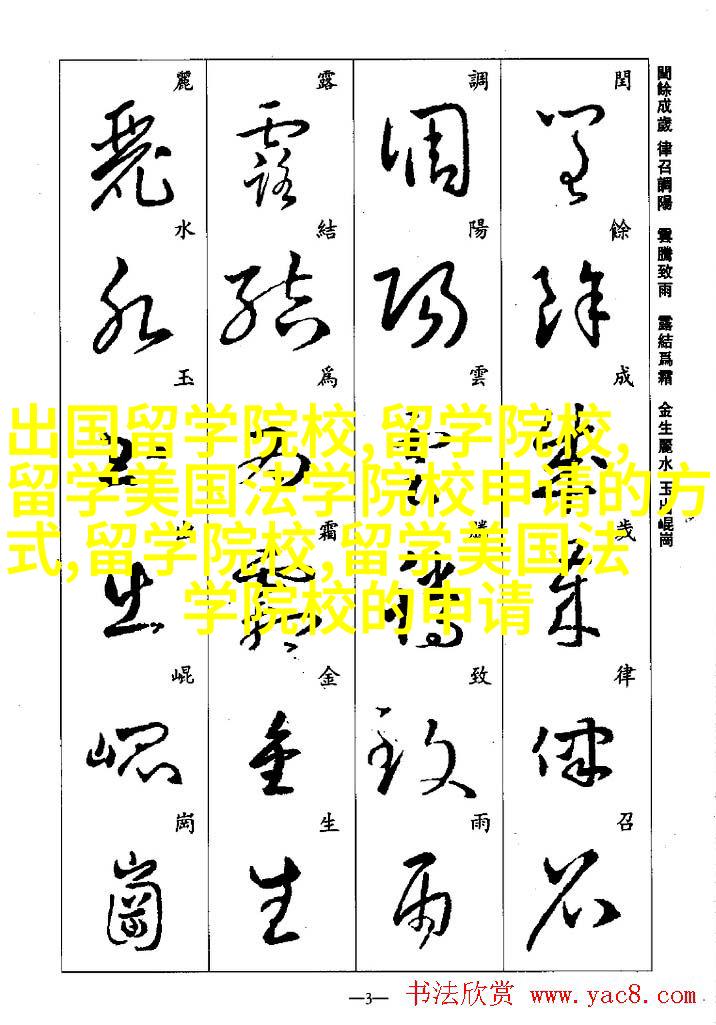 閏餘成歲 律召調陽 雲騰致雨 露結爲霜 金生麗水 玉出崐崗
閏
餘
成
律
召
調
陽
雲
騰
致
雨
露
結
爲
霜
金
生
麗
水
玉
崐
崗
出国留学院校,留学院校,
留学美国法学院校申请的方
式,留学院校,留学美国法
学院校的申请
—3—
书法欣赏 www.yac8.com